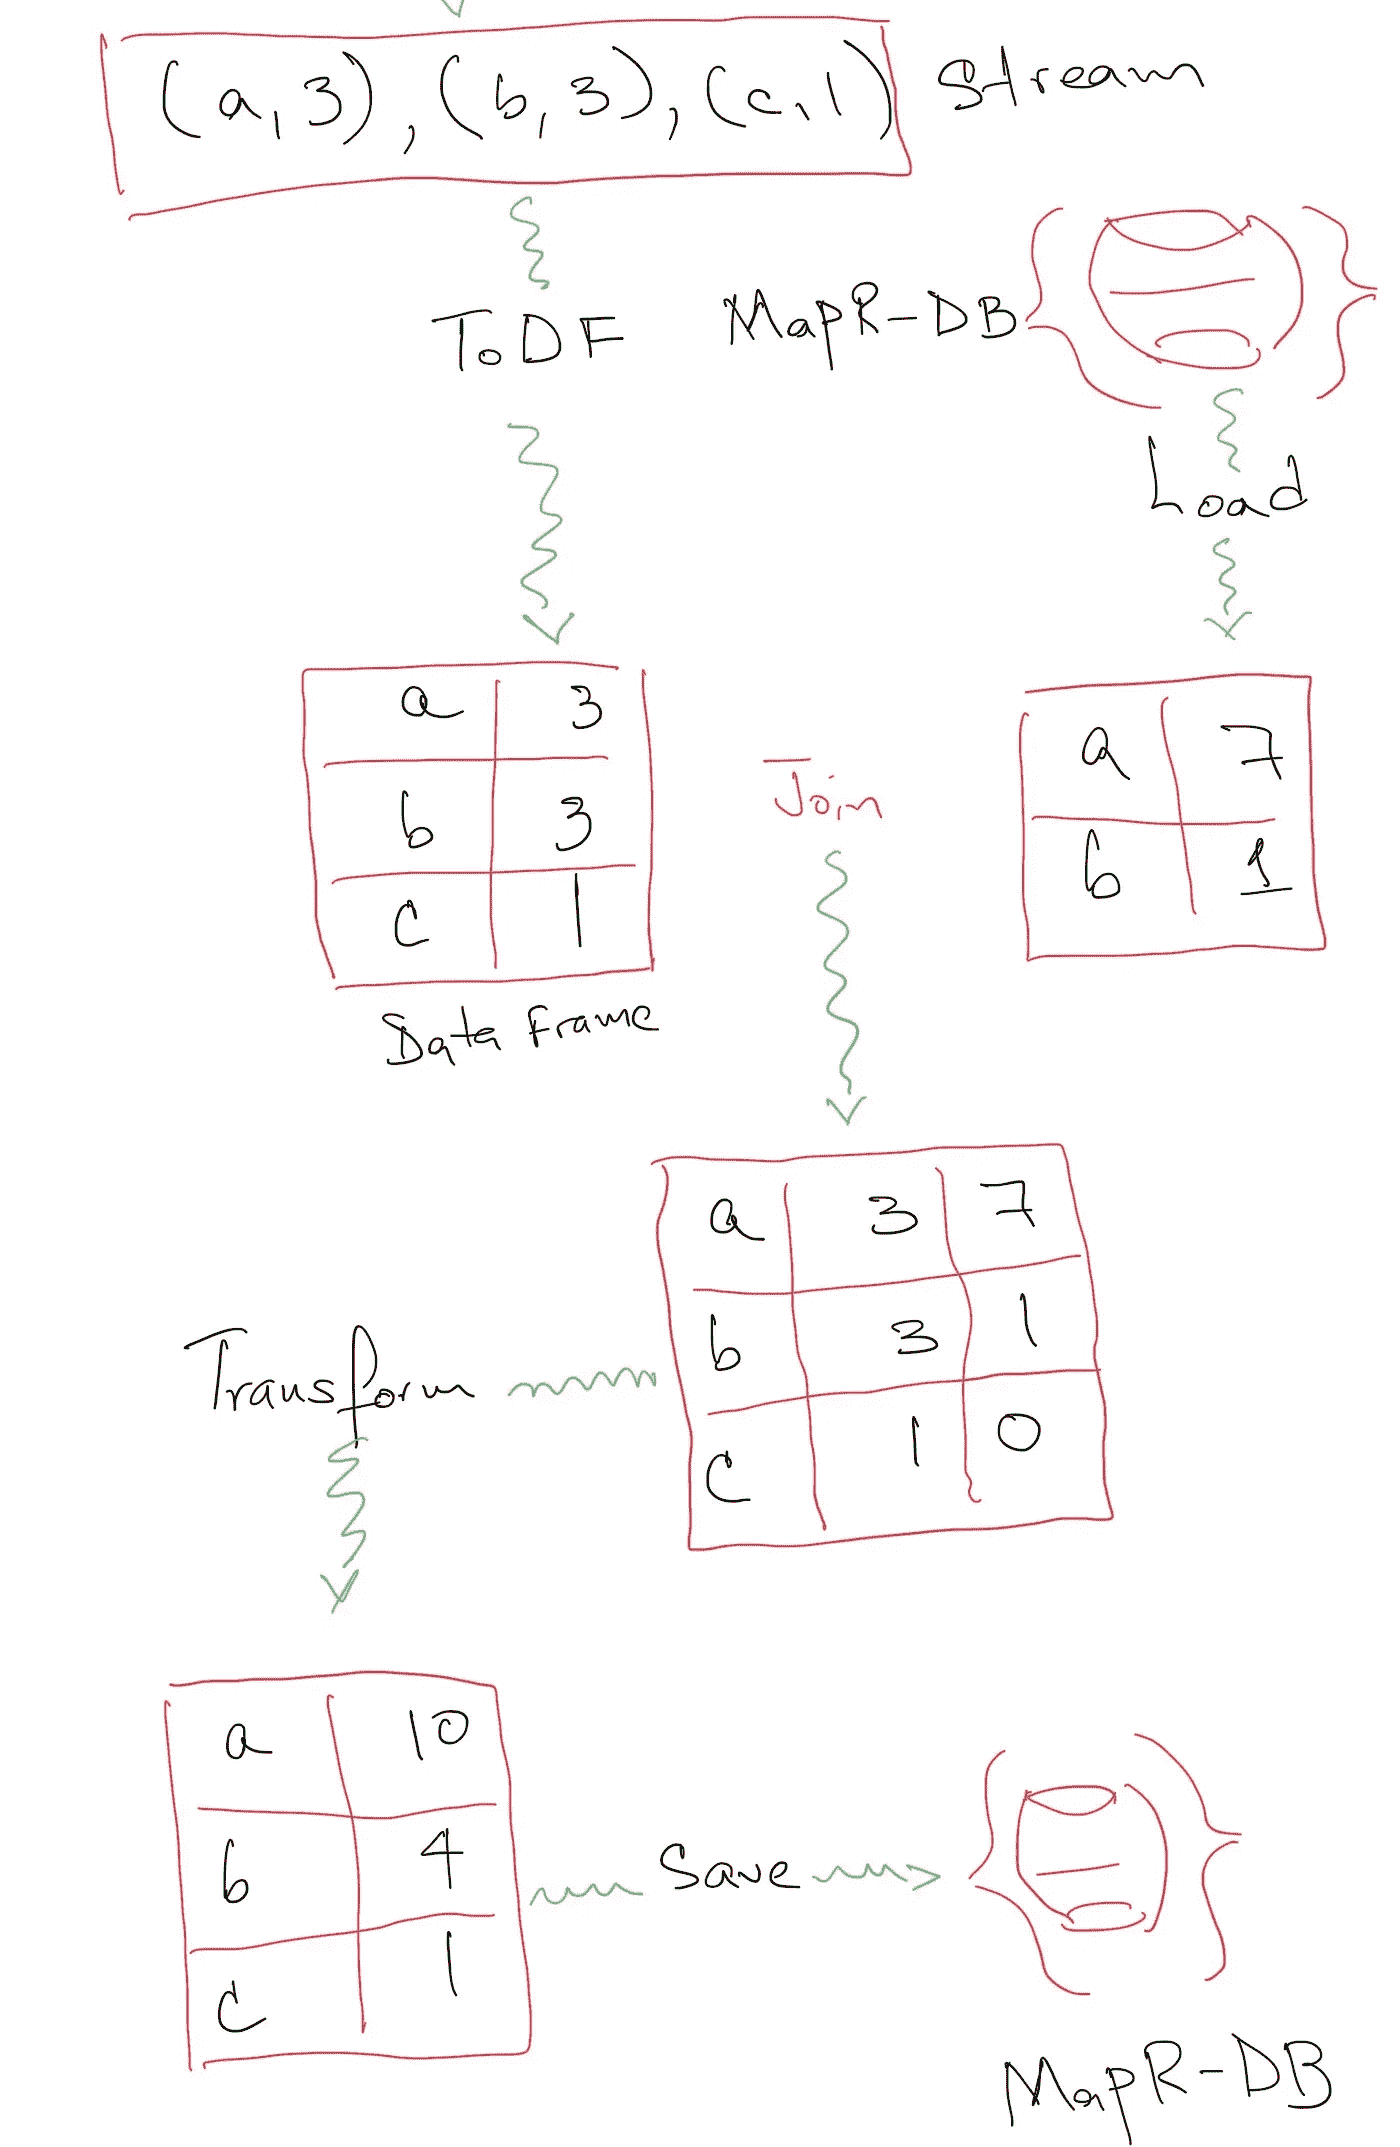 (a,3),(b,3),(c,1) Stream
ToDF
MapR-DB
Load
a 3
b 3
c 1
Data Frame
Join
a 7
b 1
a 3 7
b 3 1
c 1 0
Transform
a 10
b 4
c 1
Save
MapR-DB